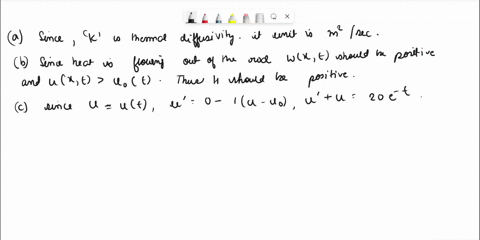 (a) Since, 'K' is thermal diffusivity. it unit is m²/sec.
(b) Since heat is flowing out of the rod w(x,t) should be positive
and u(x,t) > u₀(t). Thus H should be positive.
(c) since u = u(t), u' = 0 - 1(u - u₀), u' + u = 20e⁻ᵗ.